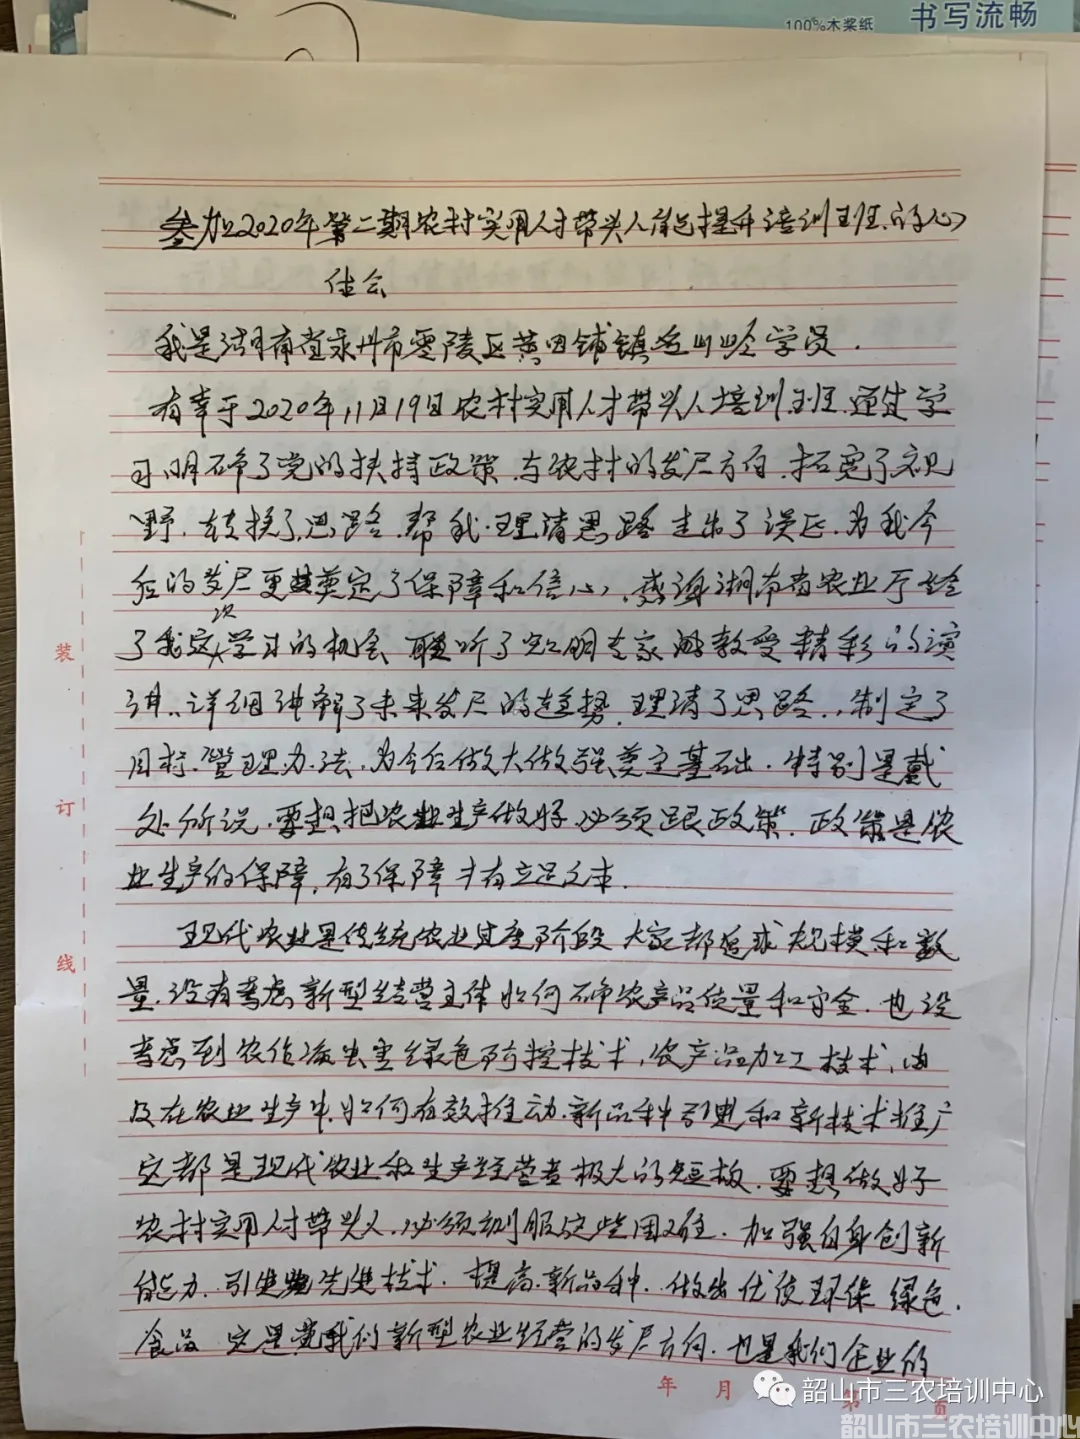 书写流畅
100%木桨纸
参加2020年第二期农村实用人才带头人能力提升培训班的心
体会
我是湖南省永州市零陵区黄田铺镇 学员.
有幸于2020年11月19日农村实用人才带头人培训班.通过学
习明确了党的扶持政策.与农村的发展方向.拓宽了视
野.转换了思路.帮我理清思路走出了误区.为我今
后的发展更奠定了保障和信心.感谢湖南省农业厅给
了我这次学习的机会 聆听了 专家 教受精彩的演
讲..详细讲解了未来发展的趋势.理清了思路..制定了
目标.管理办法.为今后做大做强奠定基础.特别是戴
处所说.要想把农业生产做好.必须跟政策.政策是农
业生产的保障,有了保障才有立足之本.
现代农业是传统农业过度阶段 大家都追求规模和数
量.没有考虑新型经营主体如何确农产品质量和安全.也没
考虑到农作病虫害绿色防控技术,农产品加工技术,由
及在农业生产中.如何有效推动.新品种引进和新技术推广
它都是现代农业和生产经营者极大的短板.要想做好
农村实用人才带头人.必须刻服这些困难.加强自身创新
能力.引进先进技术.提高.新品种.做出优质环保 绿色.
食品 它是我们新型农业经营的发展方向.也是我们企业的
装
订
线
年 月
第 页
韶山市三农培训中心
韶山市三农培训中心